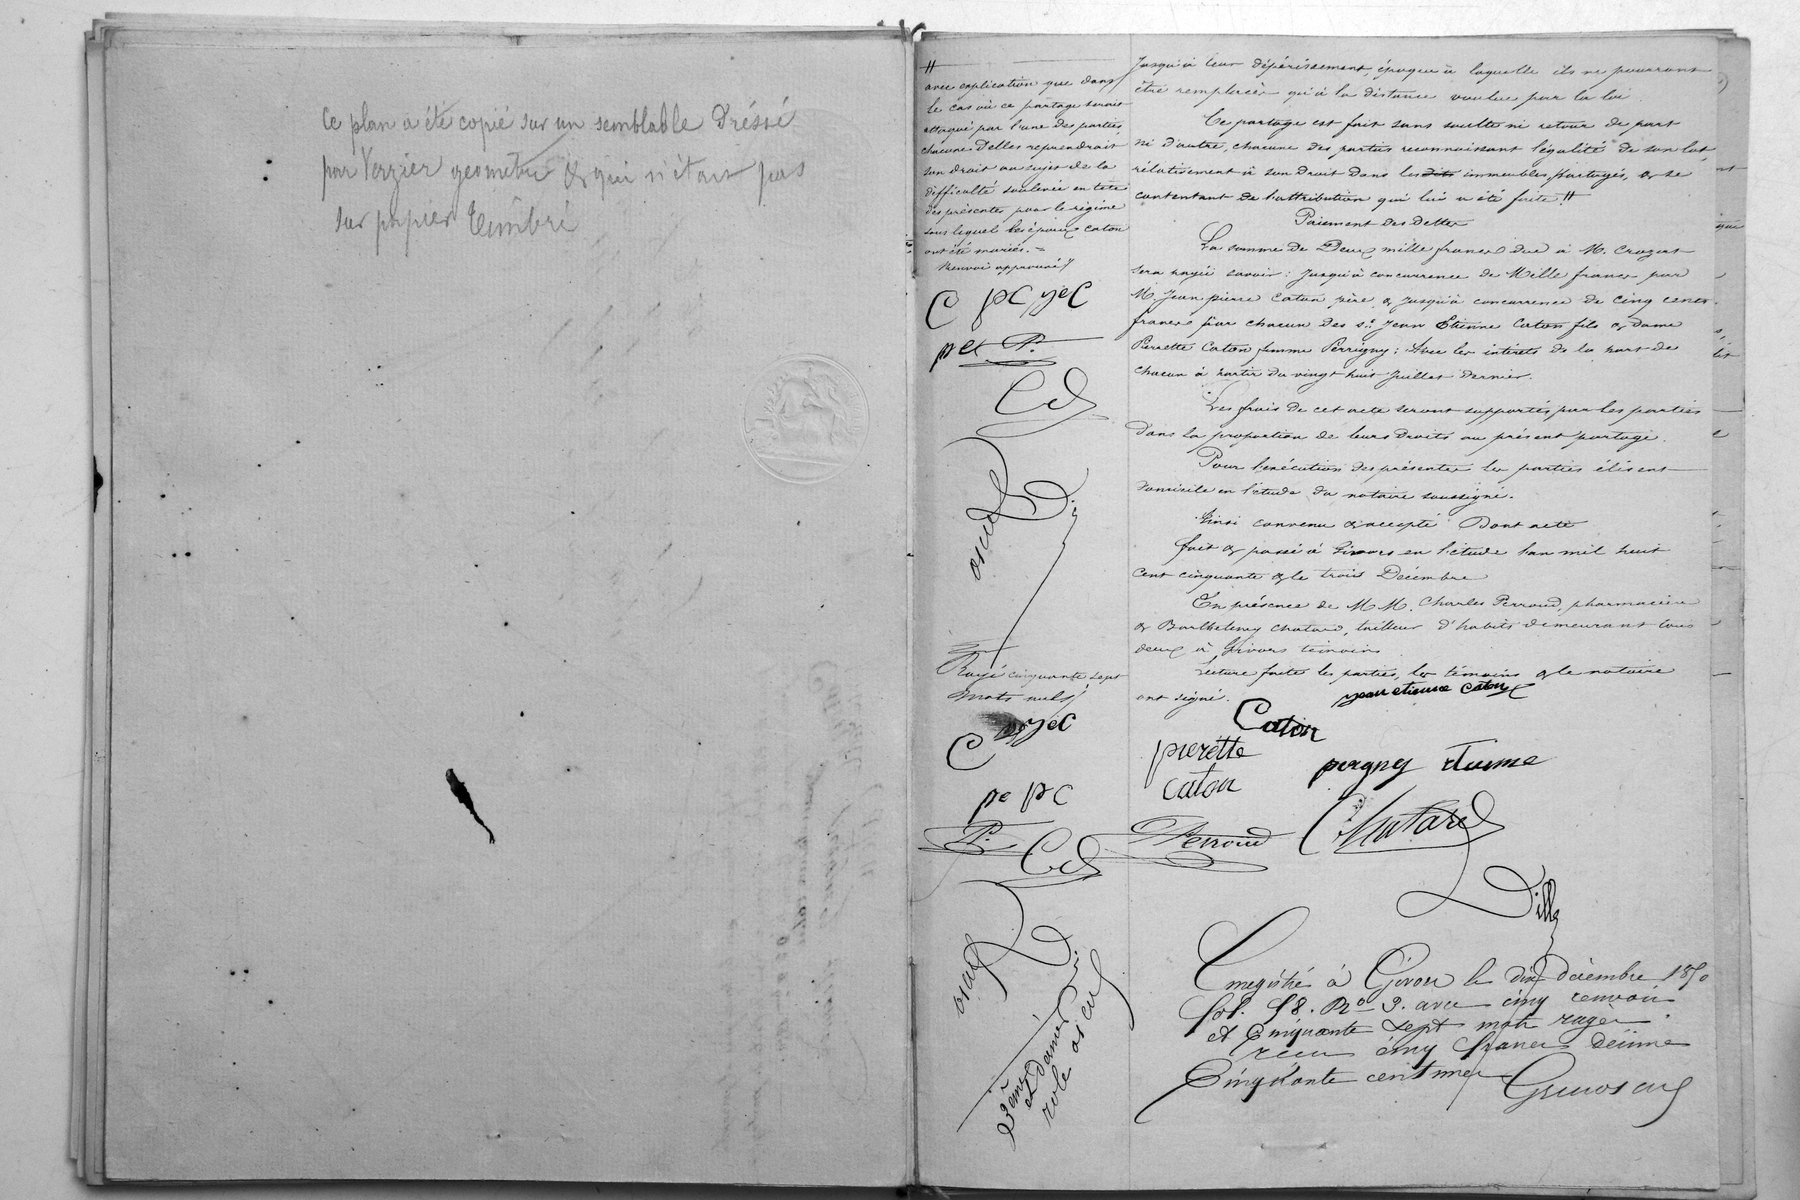 Ce plan a été copié sur un semblable dréssé
par Verzier géomètre & qui n'était pas
sur papier timbré
//
avec explication que dans
le cas où ce partage serait
attaqué par l'une des parties
chacune d'elles reprendrait
son droit au sujet de la
difficulté soulevée en tête
des présentes pour le régime
sous lequel les époux Caton
ont été mariés. =
Renvoi approuvé //
C pC jeC
pe P.
Cd
Rayé cinquante sept
mots nuls
C jeC
pe pC
P. Cd
23ème
et dernier
role
jusqu'à leur dépérissement, époque à laquelle ils ne pourront
être remplacés qu'à la distance voulue par la loi
Ce partage est fait sans soulte ni retour de part
ni d'autre, chacune des parties reconnaissant l'égalité de son lot,
relativement à son droit dans les dits immeubles partagés, & se
contentant de l'attribution qui lui a été faite. //
Paiement des dettes
La somme de Deux mille francs due à M. Crozat
sera payée savoir : jusqu'à concurrence de Mille francs par
M. Jean pierre Caton père & jusqu'à concurrence de cinq cents
francs par chacun des srs Jean Etienne Caton fils & dame
Pierrette Caton femme Perrigny ; avec les intérêts de la part de
chacun à partir du vingt huit juillet dernier.
Les frais de cet acte seront supportés par les parties
dans la proportion de leurs droits au présent partage.
Pour l'exécution des présentes les parties élisent
domicile en l'étude du notaire soussigné.
Ainsi convenu & accepté Dont acte
fait & passé à Givors en l'étude l'an mil huit
cent cinquante & le trois Décembre
En présence de MM. Charles Perroud, pharmacien
& Barthelemy Chatard, tailleur d'habits demeurant tous
deux à Givors témoins
Lecture faite les parties, les témoins & le notaire
ont signé.
jean etienne caton
Caton
pierette
caton
pergny etienne
Perroud
Chatard
Dille
Enregistré à Givors le dix décembre 1850
fol. 58. No 9. avec cinq renvois
et Cinquante sept mots rayés.
reçu cinq francs décime
Cinquante centimes